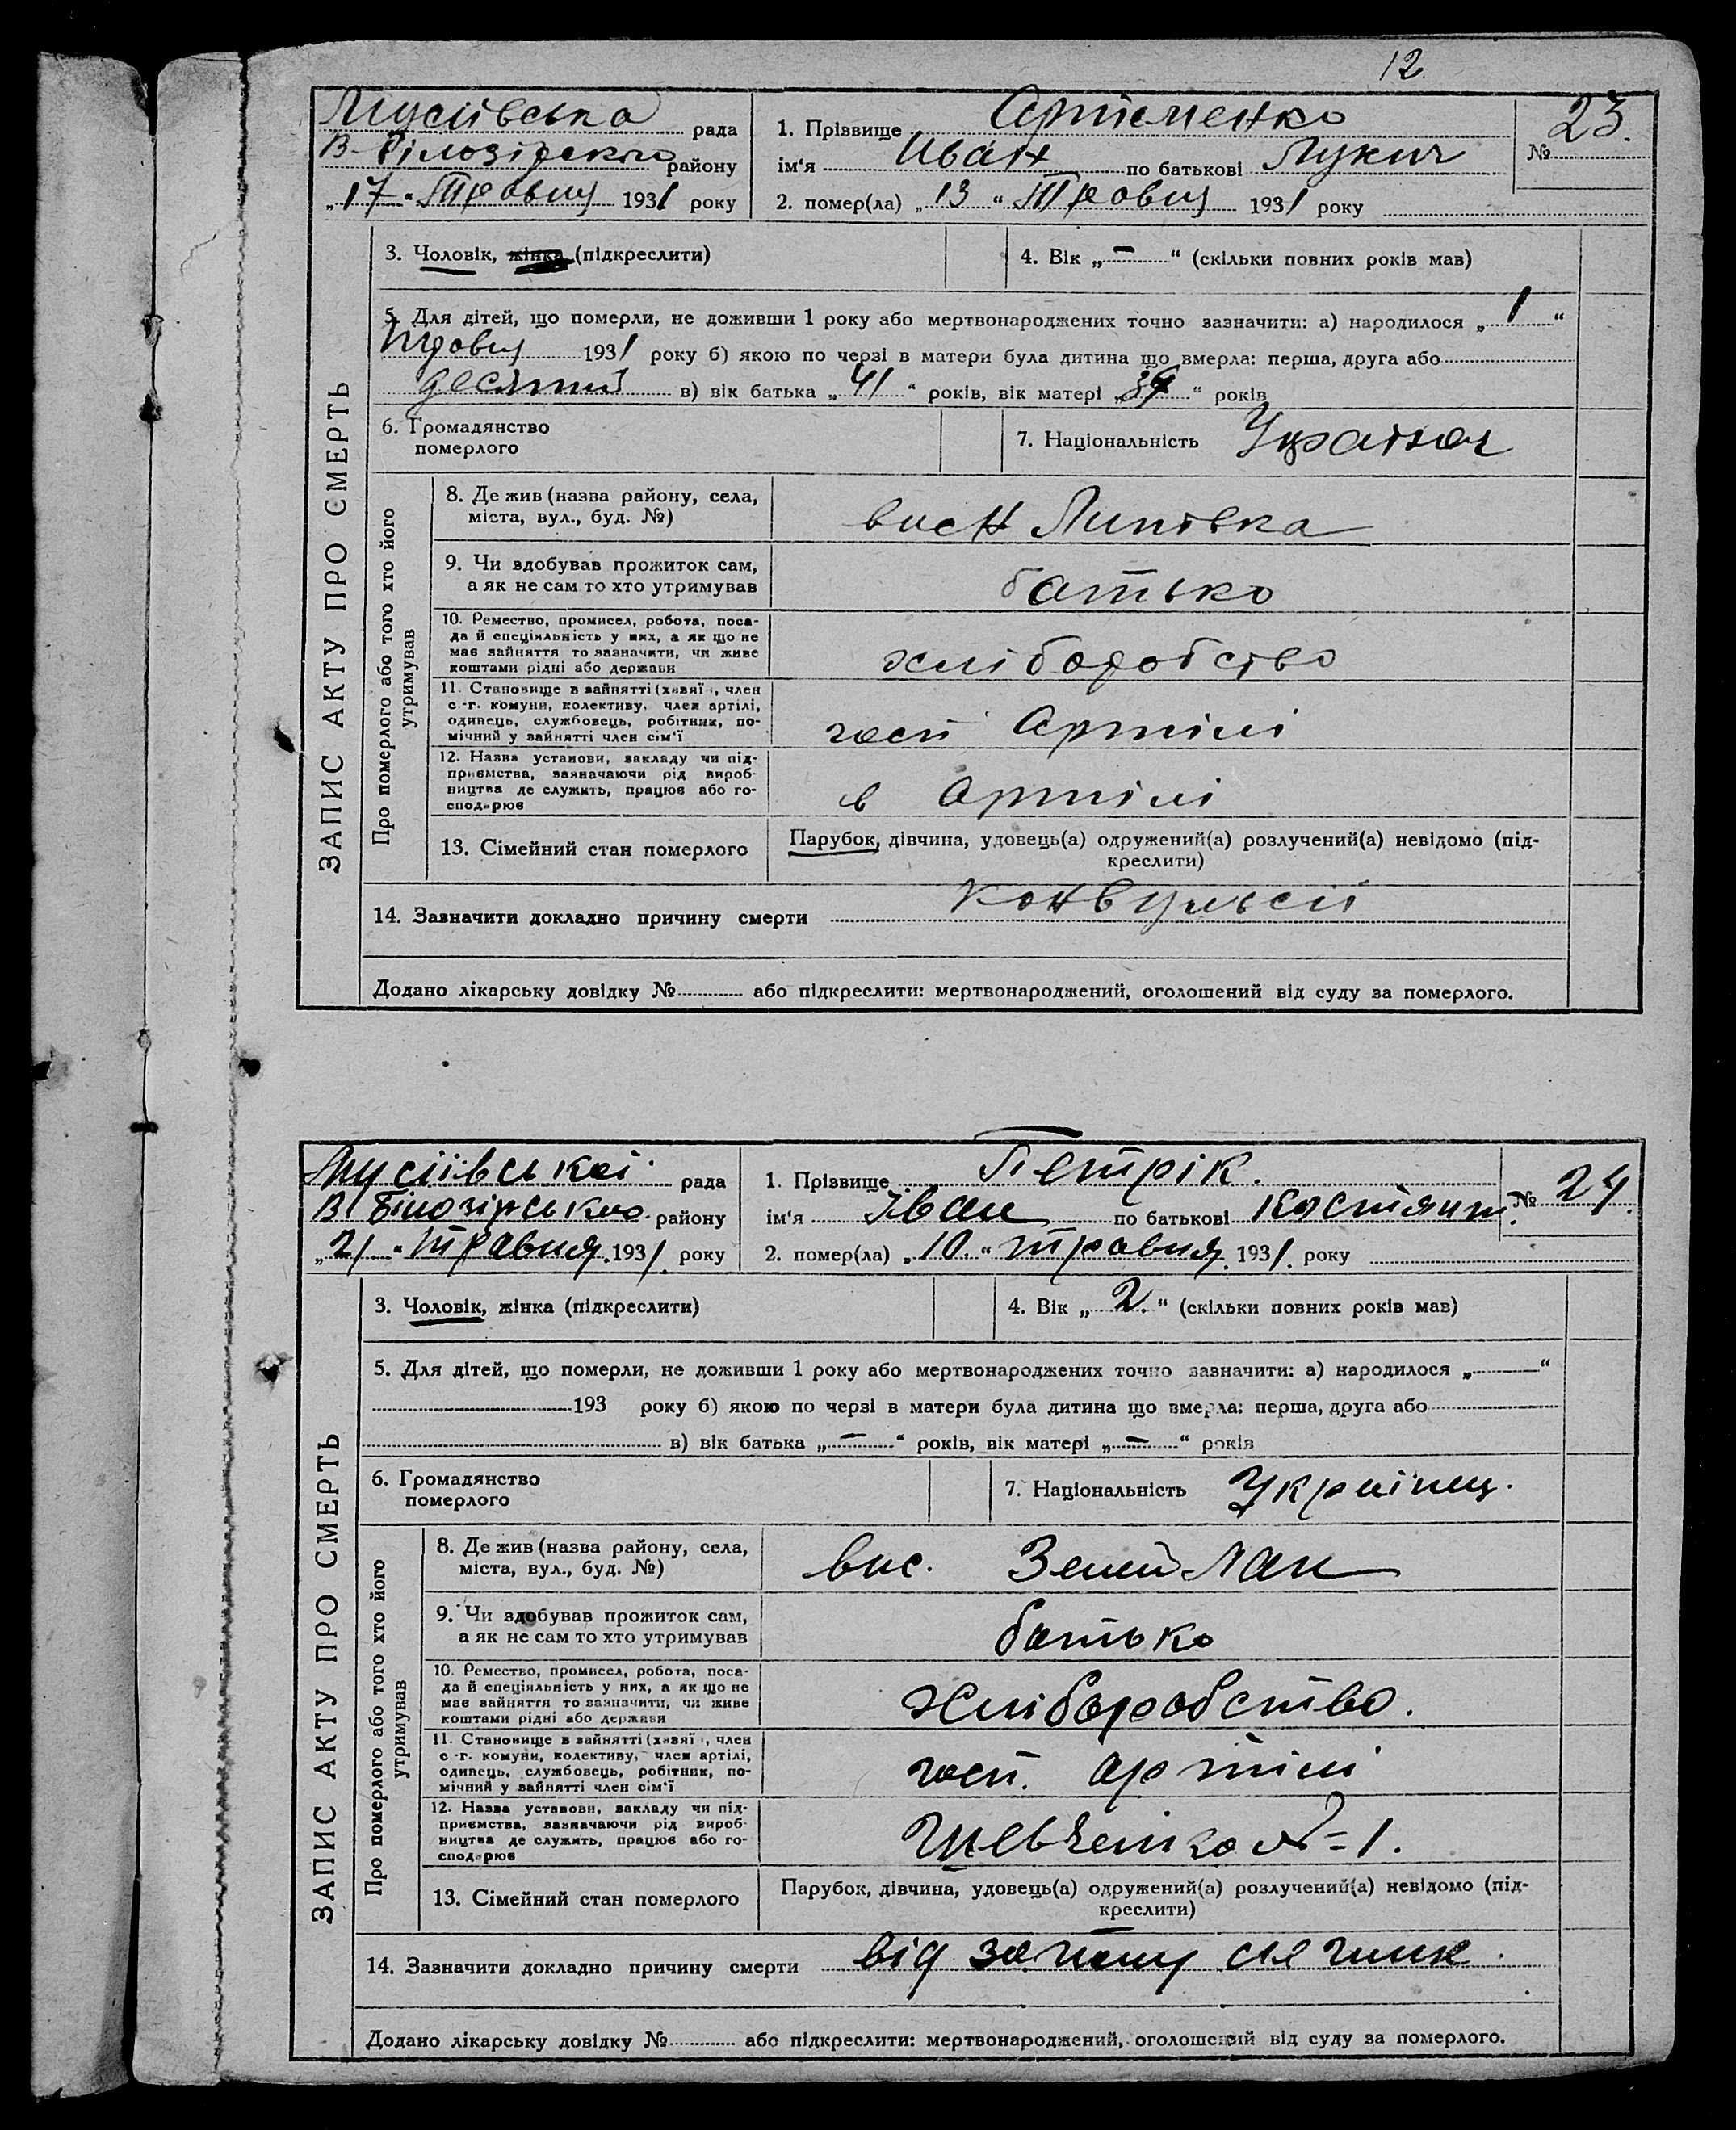 12
Мусіївська рада
В-Білозірського району
„17“ Травня 1931 року
1. Прізвище Артеменко
ім'я Иван по батькові Лукич
2. помер(ла) „13“ Травня 1931 року
№ 23.
ЗАПИС АКТУ ПРО СМЕРТЬ
3. Чоловік, жінка (підкреслити)
4. Вік „–“ (скільки повних років мав)
5. Для дітей, що померли, не доживши 1 року або мертвонароджених точно зазначити: а) народилося „1“
1931 року б) якою по черзі в матери була дитина що вмерла: перша, друга або
десятий в) вік батька „41“ років, вік матері „39“ років
6. Громадянство
померлого
7. Національність
Про померлого або того хто його
утримував
8. Де жив (назва району, села,
міста, вул., буд. №)
висН Липівка
9. Чи здобував прожиток сам,
а як не сам то хто утримував
батько
10. Ремество, промисел, робота, поса-
да й спеціяльність у них, а як що не
має зайняття то зазначити, чи живе
коштами рідні або держави
хліборобство
11. Становище в зайнятті (хазяїн, член
с.-г. комуни, колективу, член артілі,
одинець, службовець, робітник, по-
мічний у зайнятті член сім'ї
госп Артілі
12. Назва установи, закладу чи під-
приємства, зазначаючи рід вироб-
ництва де служить, працює або го-
сподарює
в Артілі
13. Сімейний стан померлого
Парубок, дівчина, удовець(а) одружений(а) розлучений(а) невідомо (під-
креслити)
14. Зазначити докладно причину смерти Конвульсії
Додано лікарську довідку № або підкреслити: мертвонароджений, оголошений від суду за померлого.
Мусіївської рада
В Білозірського району
„21“ травня 1931. року
1. Прізвище Петрік.
ім'я Іван по батькові Костянт.
2. помер(ла) „10.“ травня 1931. року
№ 24.
ЗАПИС АКТУ ПРО СМЕРТЬ
3. Чоловік, жінка (підкреслити)
4. Вік „2.“ (скільки повних років мав)
5. Для дітей, що померли, не доживши 1 року або мертвонароджених точно зазначити: а) народилося „ “
193 року б) якою по черзі в матери була дитина що вмерла: перша, друга або
в) вік батька „–“ років, вік матері „–“ років
6. Громадянство
померлого
7. Національність Українец.
Про померлого або того хто його
утримував
8. Де жив (назва району, села,
міста, вул., буд. №)
вис.
9. Чи здобував прожиток сам,
а як не сам то хто утримував
батько
10. Ремество, промисел, робота, поса-
да й спеціяльність у них, а як що не
має зайняття то зазначити, чи живе
коштами рідні або держави
Хліборобство.
11. Становище в зайнятті (хазяїн, член
с.-г. комуни, колективу, член артілі,
одинець, службовець, робітник, по-
мічний у зайнятті член сім'ї
госп. артілі
12. Назва установи, закладу чи під-
приємства, зазначаючи рід вироб-
ництва де служить, працює або го-
сподарює
Шевченко № 1.
13. Сімейний стан померлого
Парубок, дівчина, удовець(а) одружений(а) розлучений(а) невідомо (під-
креслити)
14. Зазначити докладно причину смерти від
Додано лікарську довідку № або підкреслити: мертвонароджений, оголошений від суду за померлого.